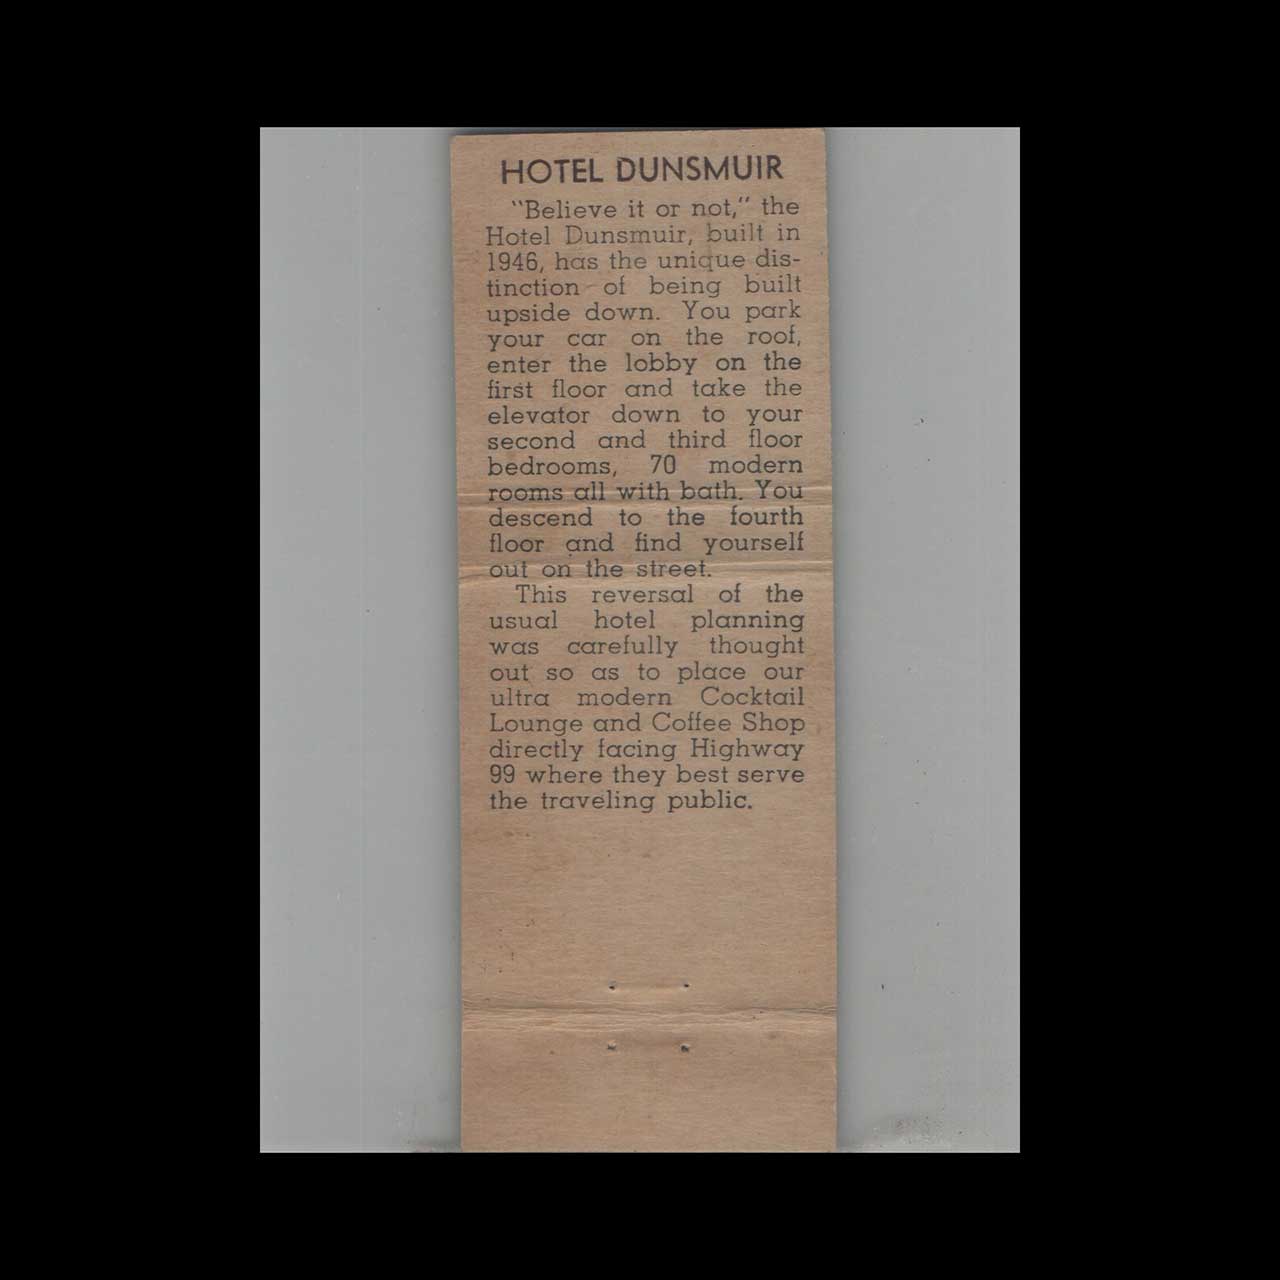 HOTEL DUNSMUIR
"Believe it or not," the
Hotel Dunsmuir, built in
1946, has the unique dis-
tinction of being built
upside down. You park
your car on the roof,
enter the lobby on the
first floor and take the
elevator down to your
second and third floor
bedrooms, 70 modern
rooms all with bath. You
descend to the fourth
floor and find yourself
out on the street.
This reversal of the
usual hotel planning
was carefully thought
out so as to place our
ultra modern Cocktail
Lounge and Coffee Shop
directly facing Highway
99 where they best serve
the traveling public.